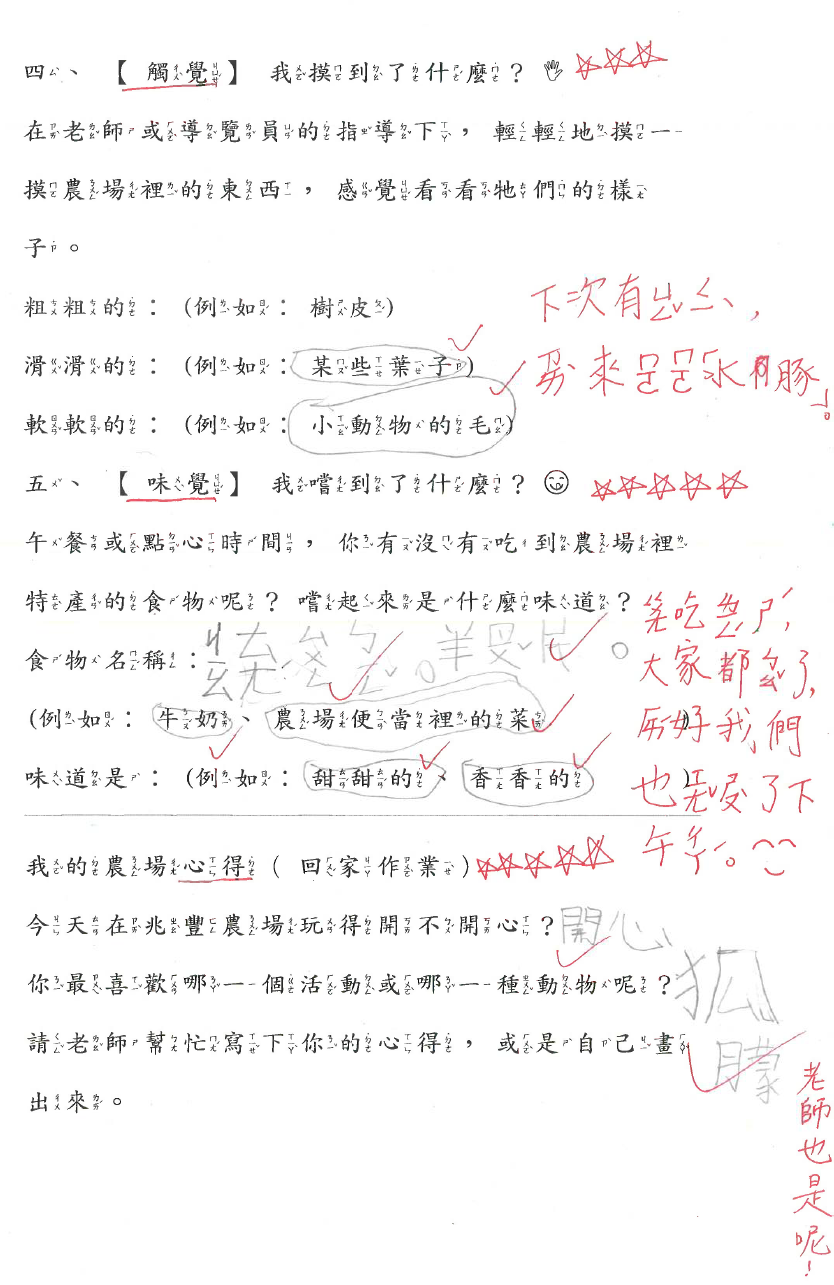 四、 【觸覺】 我摸到了什麼？
在老師或導覽員的指導下，輕輕地摸一
摸農場裡的東西，感覺看看牠們的樣
子。
粗粗的：(例如：樹皮)
滑滑的：(例如：某些葉子)
軟軟的：(例如：小動物的毛)
下次有
來 水豚。
五、 【味覺】 我嚐到了什麼？
午餐或點心時間，你有沒有吃到農場裡
特產的食物呢？嚐起來是什麼味道？
食物名稱：
(例如：牛奶、農場便當裡的菜)
味道是：(例如：甜甜的、香香的)
吃
大家都 了，
好我們
也 了下
午 。
我的農場心得(回家作業)
今天在兆豐農場玩得開不開心？開心、
你最喜歡哪一個活動或哪一種動物呢？狐
朦
請老師幫忙寫下你的心得，或是自己畫
出來。
老師也是呢！